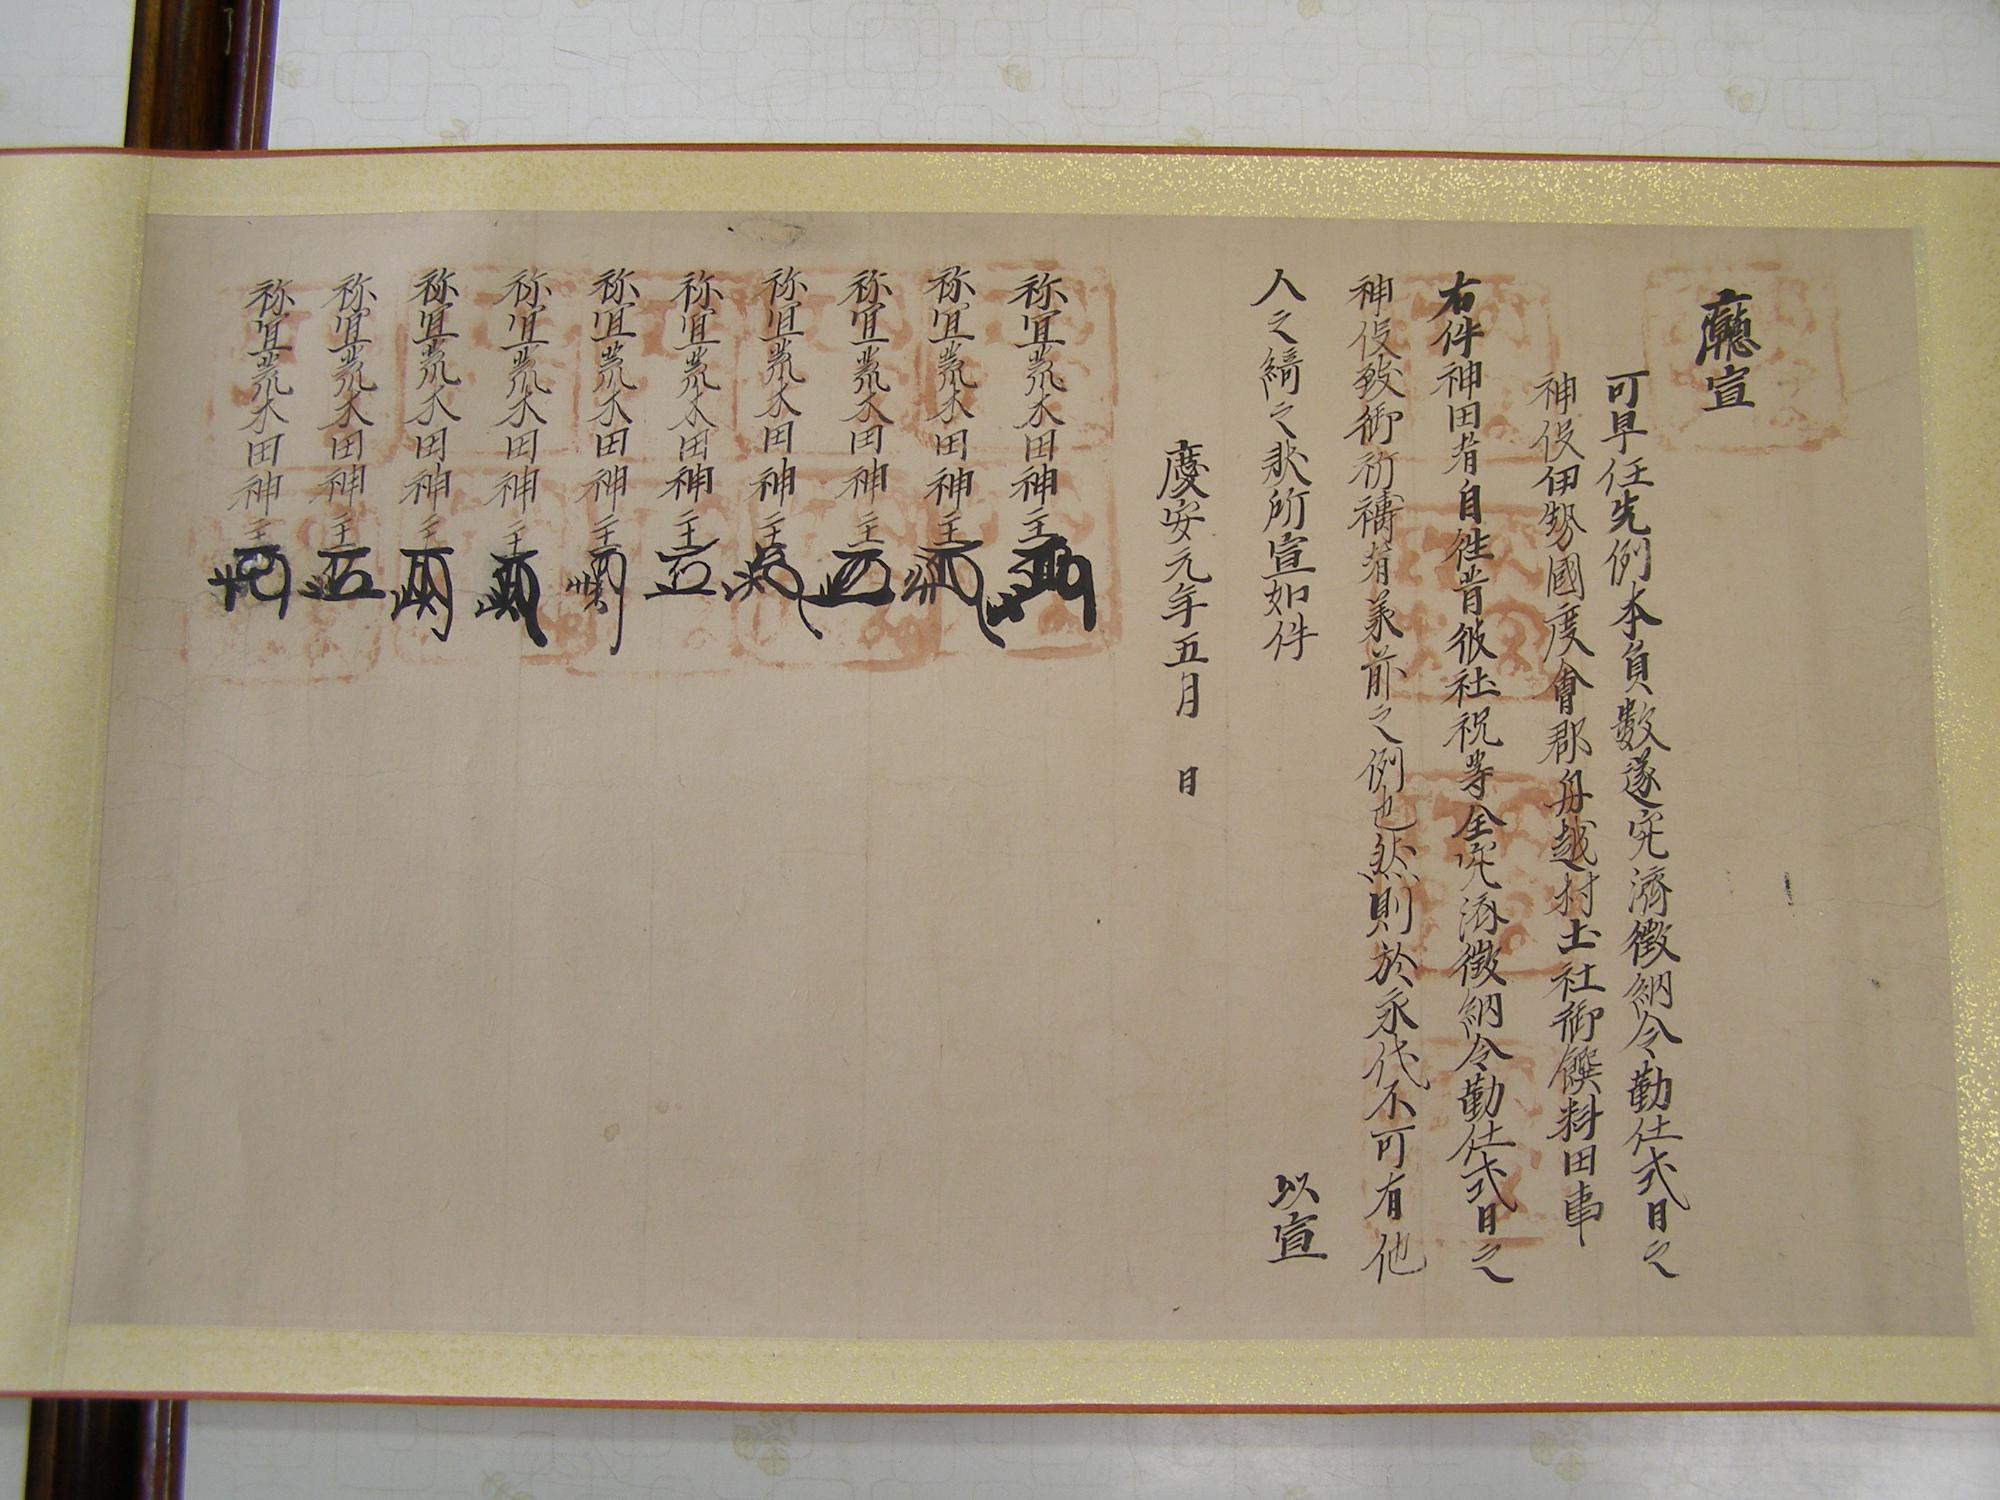 廳宣
可早任先例本負数遂究濟徴納令勤仕式日之
神役伊勢國度會郡舟越村土社御饌料田事
右件神田者自往昔彼社祝等全究濟徴納令勤仕式日之
神役致御祈禱者義前之例也然則於永代不可有他
人之綺之状所宣如件 以宣
慶安元年五月 日
祢宜荒木田神主
祢宜荒木田神主
祢宜荒木田神主
祢宜荒木田神主
祢宜荒木田神主
祢宜荒木田神主
祢宜荒木田神主
祢宜荒木田神主
祢宜荒木田神主
祢宜荒木田神主